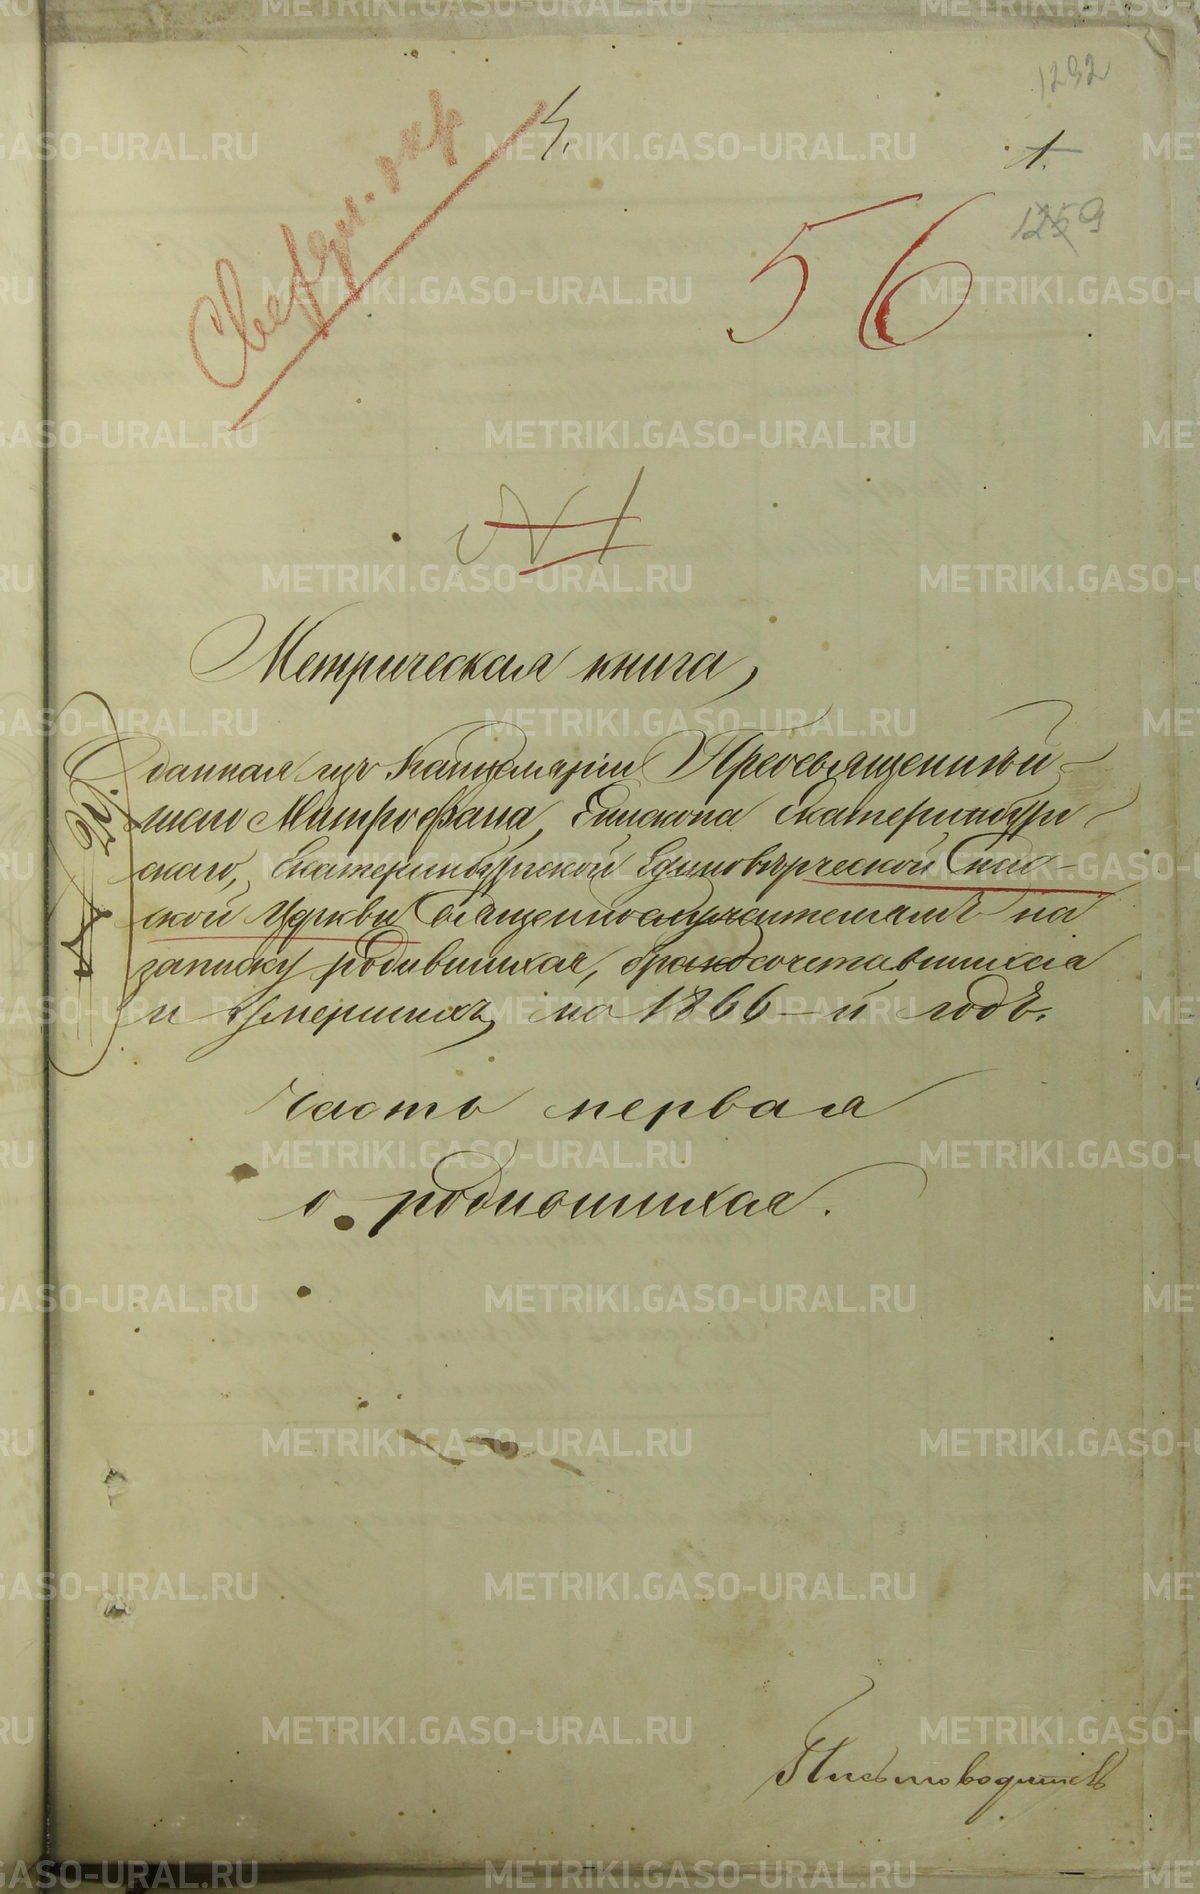 1232
1.
1259
Свердл. окр
56
№ 1
Метрическая книга,
данная изъ Канцеляріи Преосвященнѣй-
шаго Митрофана, Епископа Екатеринбург-
скаго, Екатеринбургской Единовѣрческой Спас-
ской Церкви Священнослужителямъ на
записку родившихся, бракосочетавшихся
и умершихъ, на 1866-й годъ.
Часть первая
о родившихся.
Письмоводитель
METRIKI.GASO-URAL.RU